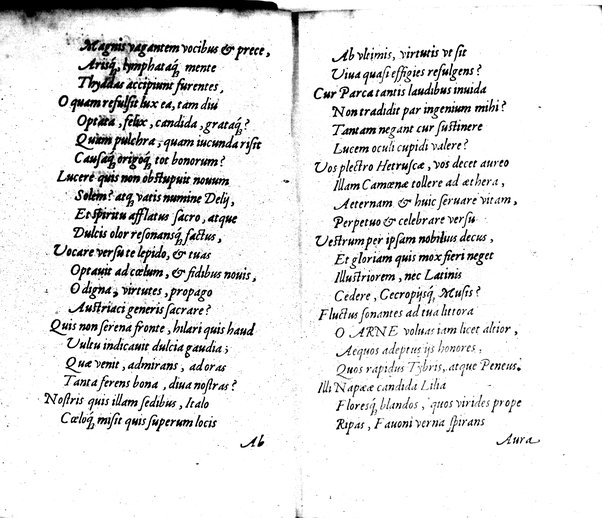 Magnis vagantem vocibus & prece,
Arisq́, lymphataq́, mente
Thyadas accipiunt furentes,
O quam refulsit lux ea, tam diu
Optata, felix, candida, grataq́?
Quam pulchra, quam iucunda risit
Causaq́, origoq́, tot bonorum?
Lucere quis non obstupuit nouum
Solem? atq́, vatis numine Delij,
Et spiritu afflatus sacro, atque
Dulcis olor resonansq́, factus,
Vocare versu te lepido, & tuas
Optauit ad cœlum, & fidibus nouis,
O digna, virtutes, propago
Austriaci generis sacrare?
Quis non serena fronte, hilari quis haud
Vultu indicauit dulcia gaudia;
Quæ venit, admirans, ad oras
Tanta ferens bona, diua nostras?
Nostris quis illam sedibus, Italo
Cœloq́, misit quis superum locis
Ab
Ab vltimis, virtutis vt sit
Viua quasi effigies refulgens?
Cur Parca tantis laudibus inuida
Non tradidit par ingenium mihi?
Tantam negant cur sustinere
Lucem oculi cupidi valere?
Vos plectro Hetruscæ, vos decet aureo
Illam Camœnæ tollere ad æthera,
Aeternam & huic seruare vitam,
Perpetuo & celebrare versu
Vestrum per ipsam nobilius decus,
Et gloriam quis mox fieri neget
Illustriorem, nec Latinis
Cedere, Cecropijsq́, Musis?
Fluctus sonantes ad tua littora
O ARNE voluas iam licet altior,
Aequos adeptus ijs honores,
Quos rapidus Tybris, atque Peneus.
Illi Napææ candida Lilia
Floresq́, blandos, quos virides prope
Ripas, Fauoni verna spirans
Aura